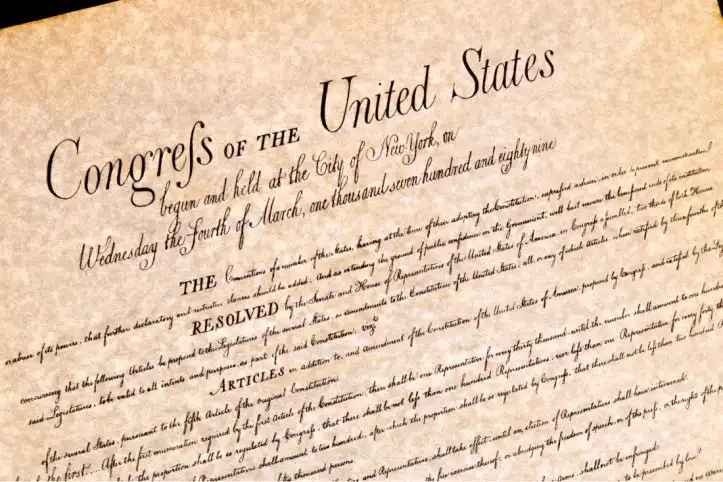 Congreſs OF THE United States
begun and held at the City of New-York, on
Wednesday the Fourth of March, one thousand seven hundred and eighty nine
THE Conventions of a number of the States, having at the time of their adopting the Constitution, expressed a desire, in order to prevent misconstruction
or abuse of its powers, that further declaratory and restrictive clauses should be added: And as extending the ground of public confidence in the Government, will best ensure the beneficent ends of its institution
RESOLVED by the Senate and House of Representatives of the United States of America, in Congreſs aſsembled, two thirds of both Houses
concurring, that the following Articles be proposed to the Legislatures of the several States, as amendments to the Constitution of the United States, all, or any of which Articles, when ratified by three fourths of the
said Legislatures, to be valid to all intents and purposes, as part of the said Constitution; vizt
ARTICLES in addition to, and Amendment of the Constitution of the United States of America, proposed by Congreſs, and ratified by the
of the several States, pursuant to the fifth Article of the original Constitution.
the first.... After the first enumeration required by the first Article of the Constitution, there shall be one Representative for every thirty thousand, until the number shall amount to one hundred
the proportion shall be so regulated by Congreſs, that there shall be not leſs than one hundred Representatives, nor leſs than one Representative for every forty
Representatives shall amount to two hundred, after which the proportion shall be so regulated by Congreſs, that there shall not be leſs than two hundred
fifty thousand persons.
and Representatives, shall take effect, until an election of Representatives shall have intervened.
the free exercise thereof; or abridging the freedom of speech, or of the preſs, or the right of the
Arms, shall not be infringed.
to be prescribed by law.